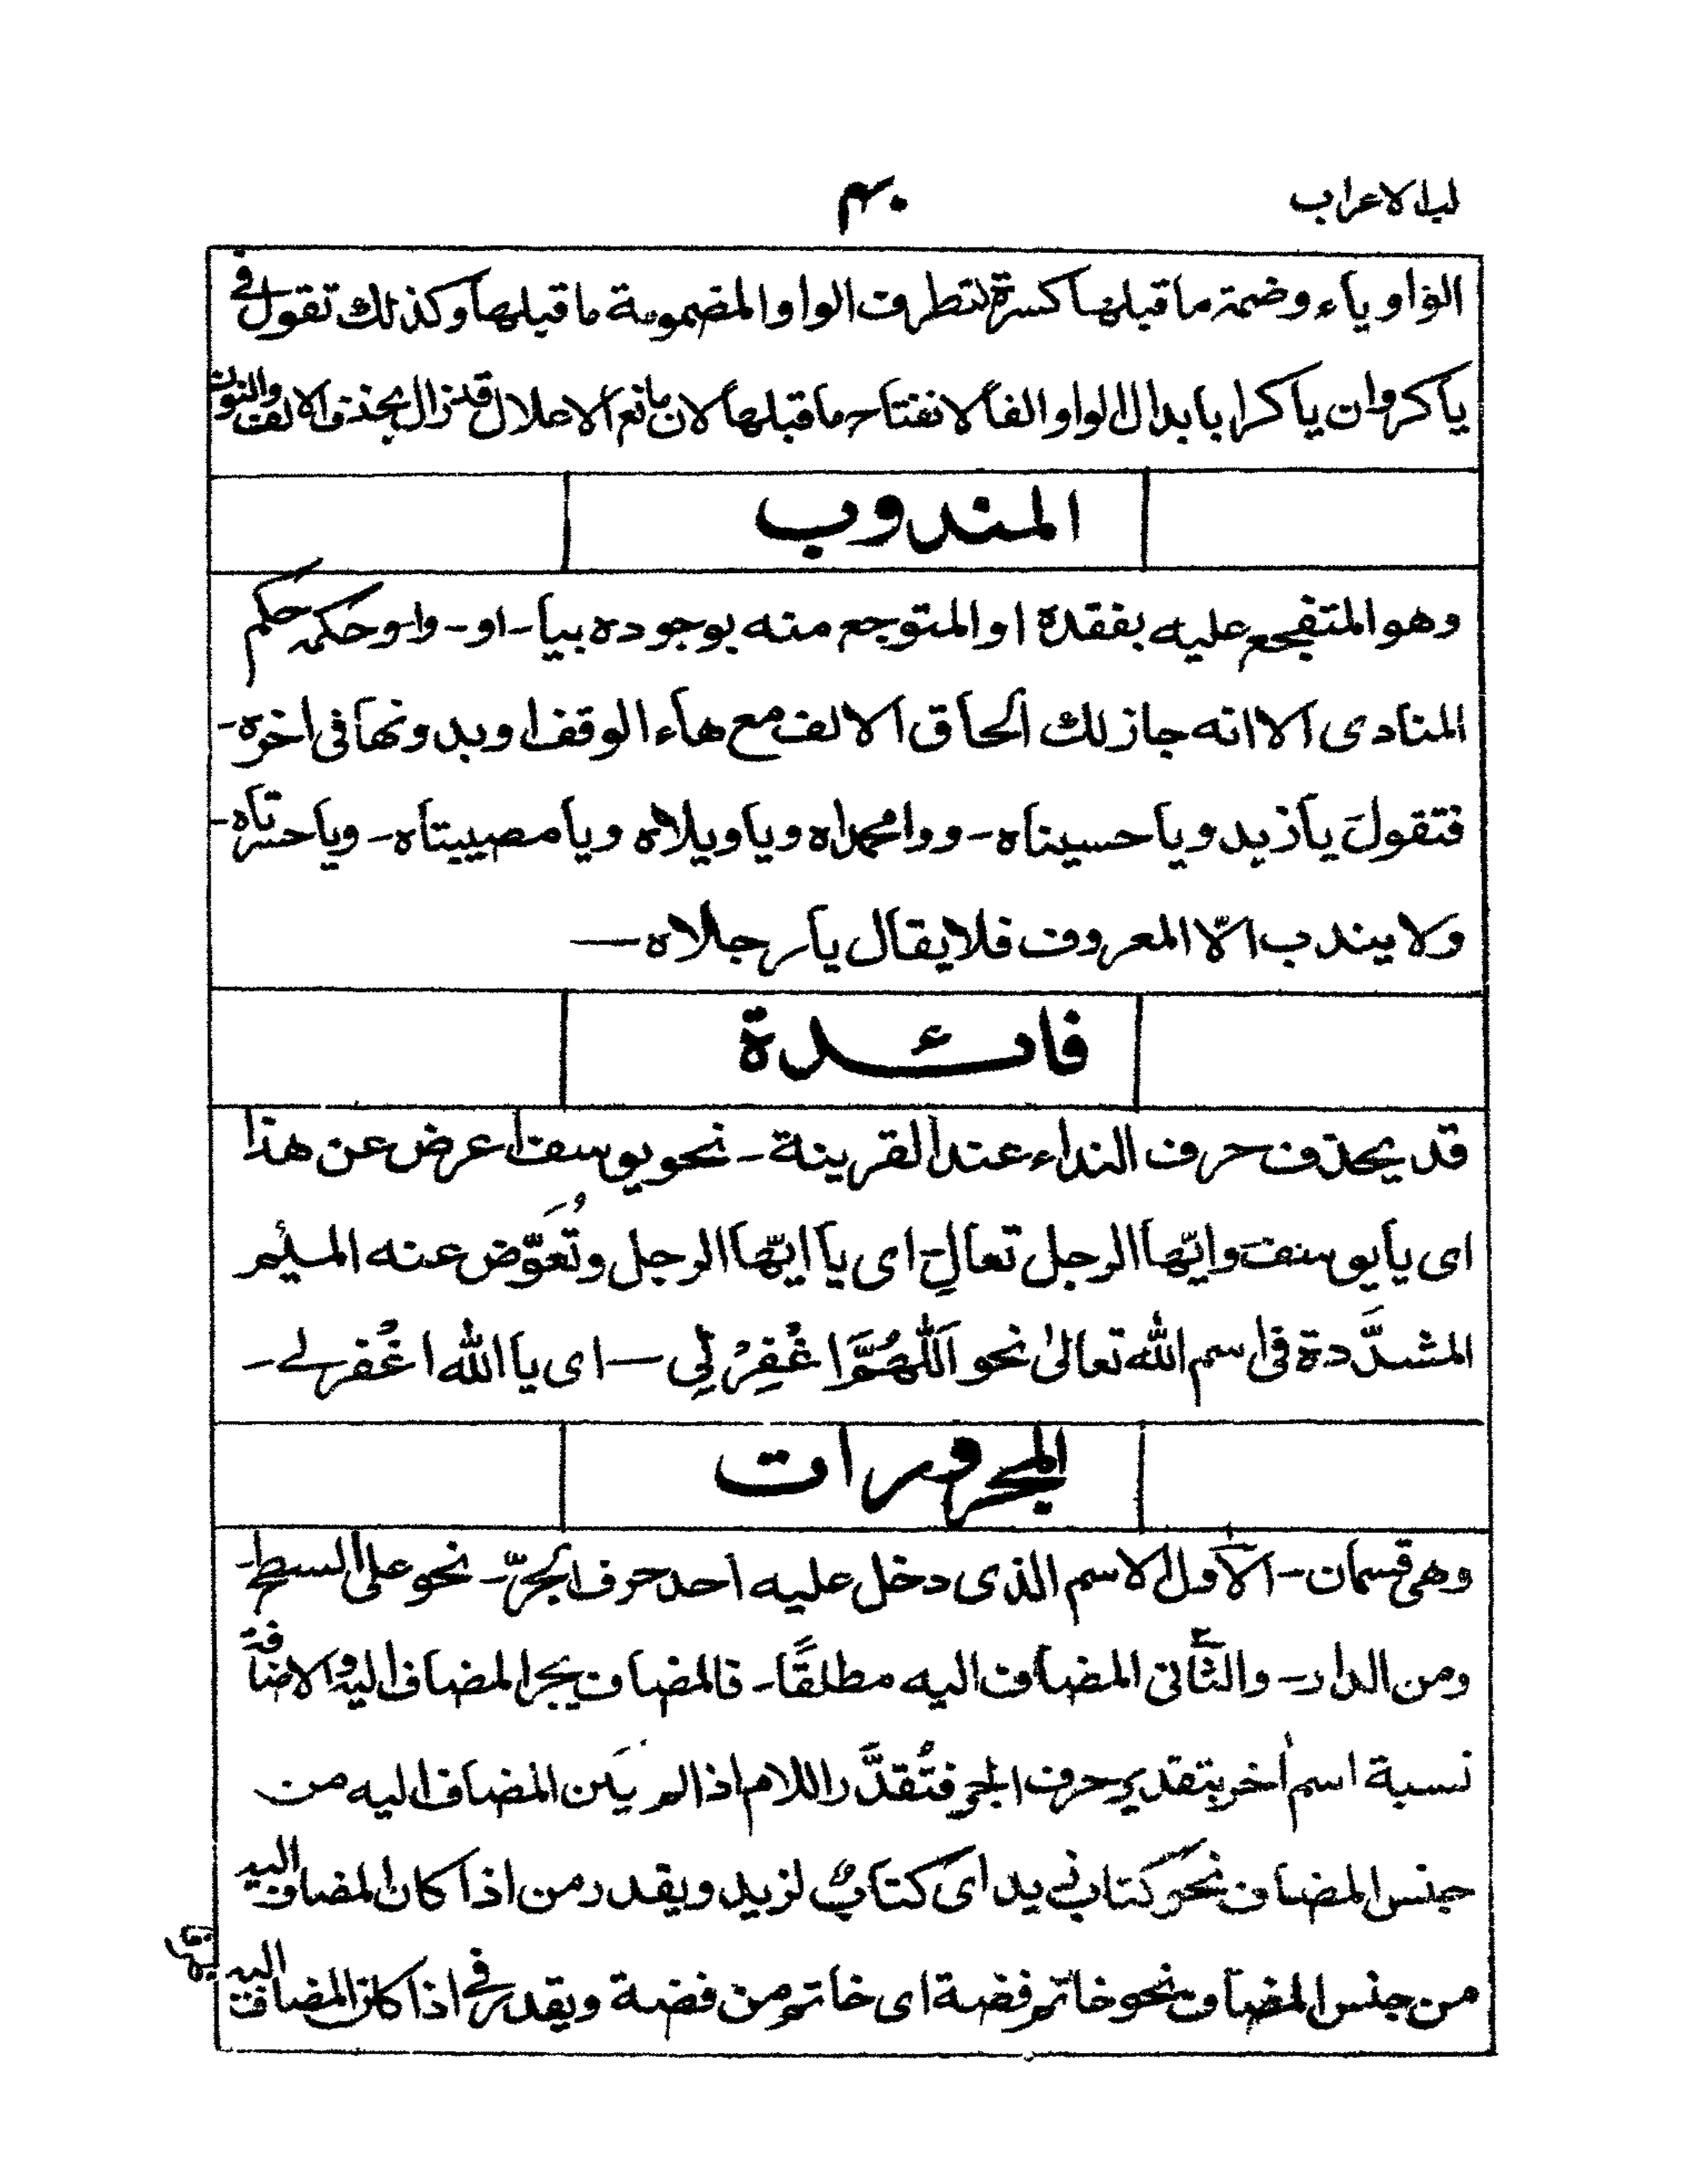 لب الاعراب
۴۰
الواو ياء وضمة ما قبلها كسرة لتطرف الواو المضمومة ما قبلها وكذلك تقول في
يا كروان يا كرا بابدال الواو الفا لانفتاح ما قبلها لان مانع الاعلال قد زال بحذف الالف والنون
المندوب
وهو المتفجع عليه بفقده او المتوجع منه بوجوده بيا - او - وا - وحكمه حكم
المنادى الا انه جاز لك الحاق الالف مع هاء الوقف او بدونها فى اخره -
فتقولَ يا زيد ويا حسيناه - ووا محمداه ويا ويلاه ويا مصيبتاه - ويا حسرتاه -
ولا يندب الّا المعروف فلا يقال يا رجلاه —
فائدة
قد يحذف حرف النداء عند القرينة - نحو يوسف اعرض عن هذا
اى يا يوسف وايّها الرجل تعالِ اى يا ايّها الرجل وتُعَوّض عنه الميم
المشدَّدة فى اسم الله تعالىٰ نحو اَللّٰهُمَّ اغْفِرْ لِي — اى يا الله اغفر لے -
المجرورات
وهى قسمان - الاول الاسم الذى دخل عليه احد حرف الجرّ - نحو على السطح
ومن الدار - والثانى المضاف اليه مطلقًا - فالمضاف يجر المضاف اليه والاضافة
نسبة اسم اٰخر بتقدير حرف الجر فتُقدَّر اللام اذا لم يكن المضاف اليه من
جنس المضاف نحو كتاب زيد اى كتابٌ لزيد ويقدر من اذا كان المضاف اليه
من جنس المضاف نحو خاتم فضة اى خاتم من فضة ويقدر فى اذا كان المضاف اليه